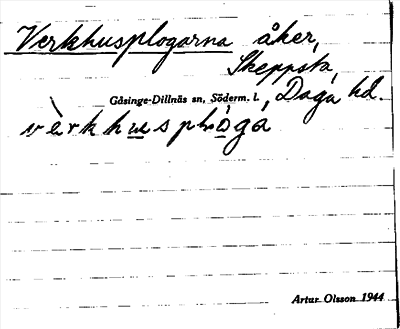 Verkhusplogarna åker,
Skeppsta,
Gåsinge-Dillnäs sn, Söderm. l., Daga hd.
vèrkhusplóga
Artur Olsson 1944